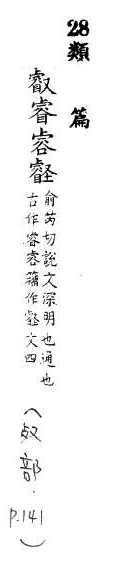 28
類篇
叡睿壡
俞芮切說文深明也通也
古作睿籒作壡文四
(𣦻部.
p.141)